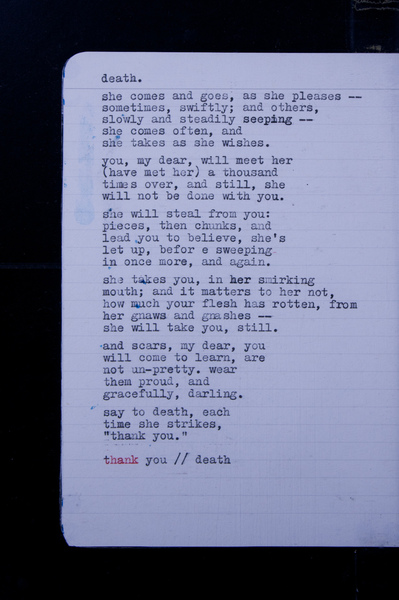 death.
she comes and goes, as she pleases --
sometimes, swiftly; and others,
slowly and steadily seeping --
she comes often, and
she takes as she wishes.
you, my dear, will meet her
(have met her) a thousand
times over, and still, she
will not be done with you.
she will steal from you:
pieces, then chunks, and
lead you to believe, she's
let up, befor e sweeping
in once more, and again.
she takes you, in her smirking
mouth; and it matters to her not,
how much your flesh has rotten, from
her gnaws and gnashes --
she will take you, still.
and scars, my dear, you
will come to learn, are
not un-pretty. wear
them proud, and
gracefully, darling.
say to death, each
time she strikes,
"thank you."
thank you // death